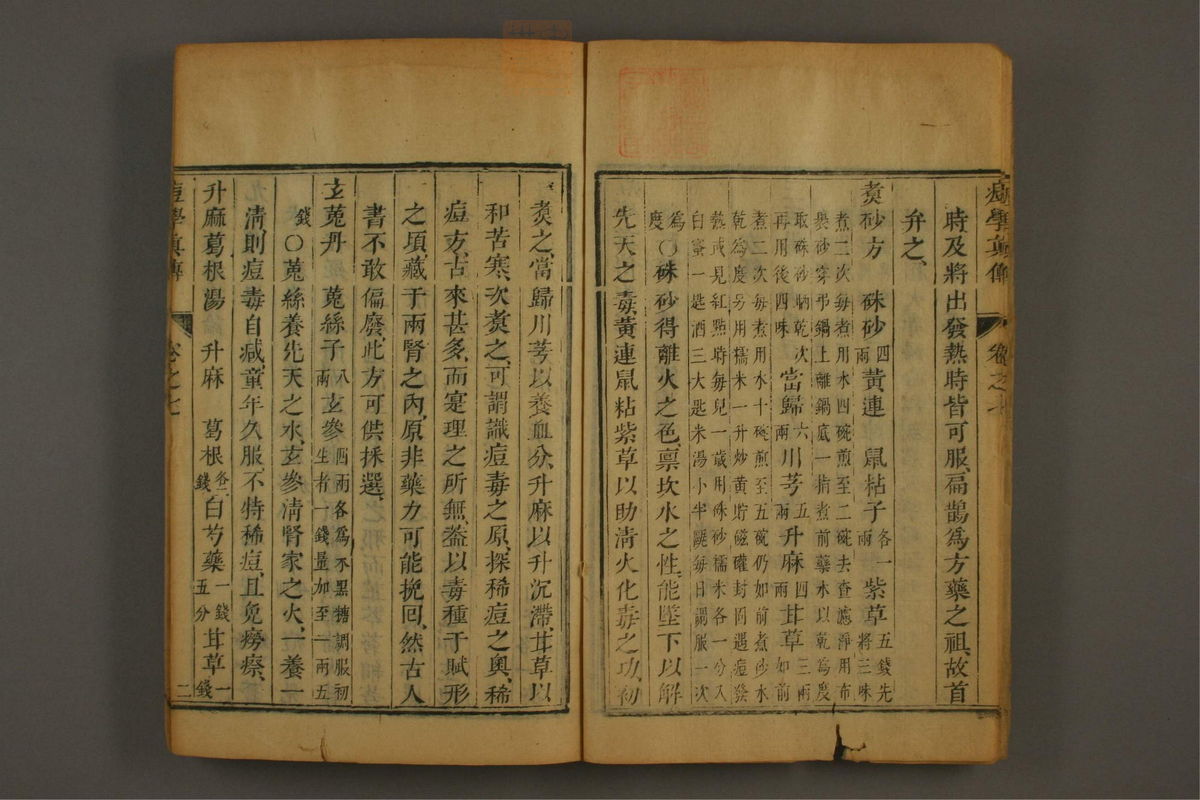 痘學真傳 卷之七
時及將出發熱時皆可服扁鵲為方藥之祖故首
弁之
煑砂方 硃砂四兩 黃連 鼠粘子各一兩 紫草五錢先將三味
煮二次每煮用水四碗煎至二碗去查濾淨用布
褁砂穿弔鍋上離鍋底一指煮前藥水以乾為度
取硃砂晒乾次再用後四味 當歸六兩 川芎五兩 升麻四兩 甘草三兩如前
煮二次每煮用水十碗煎至五碗仍如前煮砂水
乾為度另用糯米一升炒黃貯磁礶封固遇痘發
熱或見紅㸃時每兒一歲用硃砂糯米各一分入
白蜜一匙酒三大匙米湯小半甌每日調服一次
為度〇硃砂得離火之色禀坎水之性能墜下以解
先天之毒黃連鼠粘紫草以助清火化毒之功初
煑之當歸川芎以養血分升麻以升沉滯甘草以
和苦寒次煑之可謂識痘毒之原探稀痘之奧稀
痘方古來甚多而寔理之所無葢以毒種于賦形
之頃藏于兩腎之內原非藥力可能挽囘然古人
書不敢偏廢此方可供採選
玄菟丹 菟絲子八兩 玄參四兩各為末黑糖調服初生者一錢量加至一兩五
錢〇菟絲養先天之水玄參清腎家之火一養一
清則痘毒自减童年久服不特稀痘且免癆瘵
升麻葛根湯 升麻 葛根各二錢 白芍藥一錢五分 甘草一錢
痘學真傳 卷之七 二